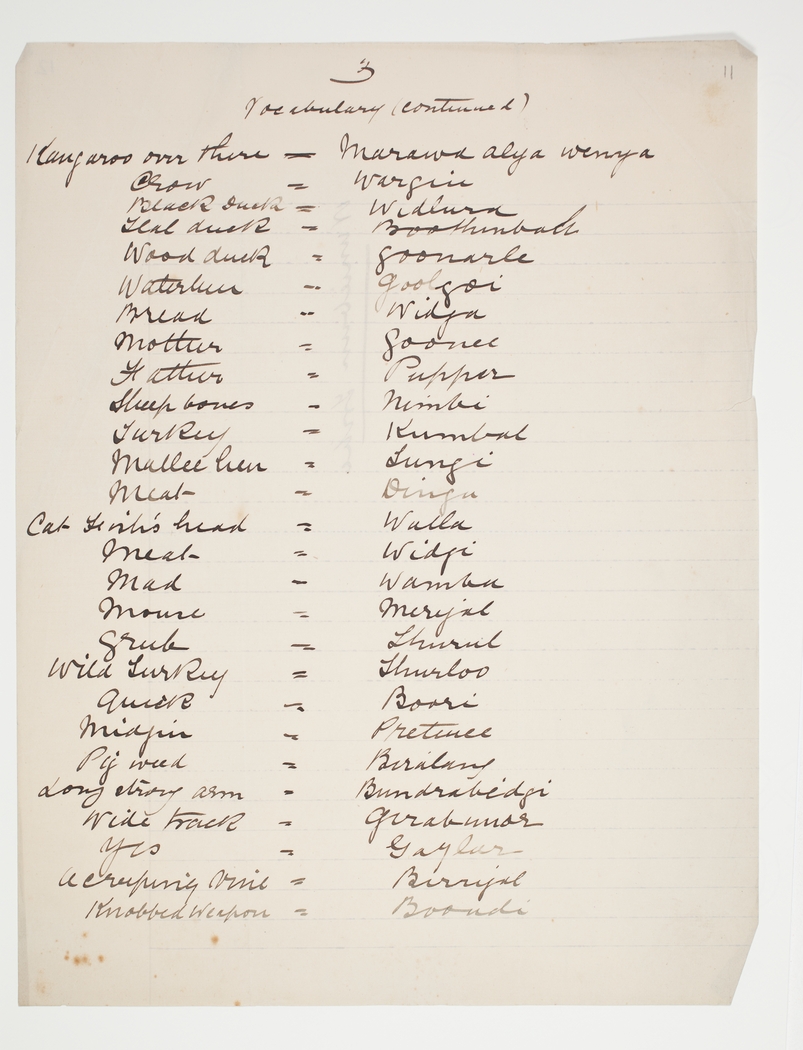 11
Vocabulary (continued)
Kangaroo over there = Marawa alya wenya
Crow = Wargin
Black Duck = Widlura
Teal duck - Boothinbah
Wood duck = goonarle
Waterhen -- Goolgoi
Bread -- Widga
Mother = goonee
Father = Pupper
Sheep bones - Nimbi
Turkey = Kumbal
Mallee hen = Lungi
Meat = Dinga
Cat head = Walla
Meat = Widgi
Mad - Wamba
Mouse = Merijal
Grub = Thurul
Wild Turkey = Thurloo
Quick = Boori
Midgin = Pretunee
Pig weed = Biralang
Long strong arm = Bundrabedgi
Wide track = Girabunor
Yes = Gaylar
A creeping Vine = Birrijal
Knobbed Weapon = Boondi